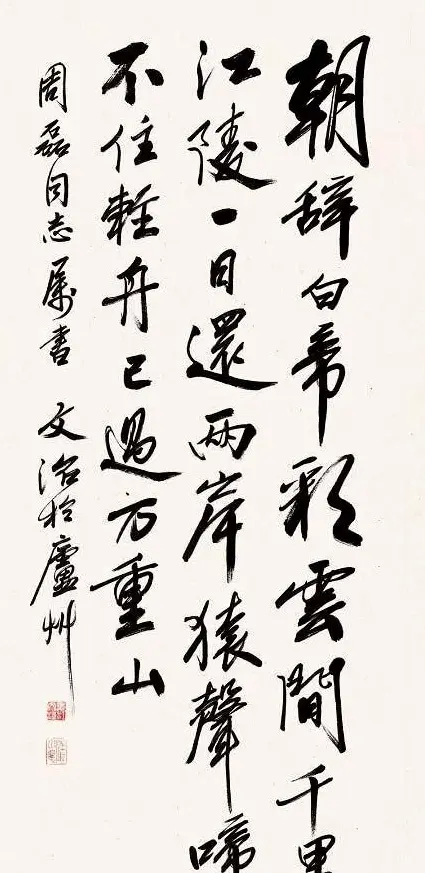 朝辞白帝彩雲間千里
江陵一日還兩岸猿聲啼
不住輕舟已過万重山
周磊同志属書 文治於廬州